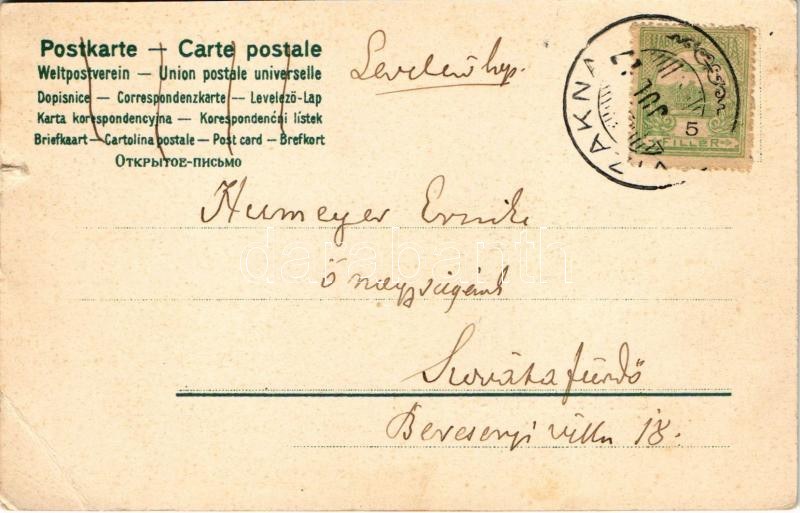 Postkarte — Carte postale
Weltpostverein — Union postale universelle
Dopisnice — Correspondenzkarte — Levelező-Lap
Karta korespondencyjna — Korespondenční lístek
Briefkaart — Cartolina postale — Post card — Brefkort
Открытое-письмо
Levelező lap.
VIZAKNA
JUL
5
FILLER
Humeyer Ernike
Ő nagyságának
Szováta fürdő
Bercsenyi villa 18.
darabanth